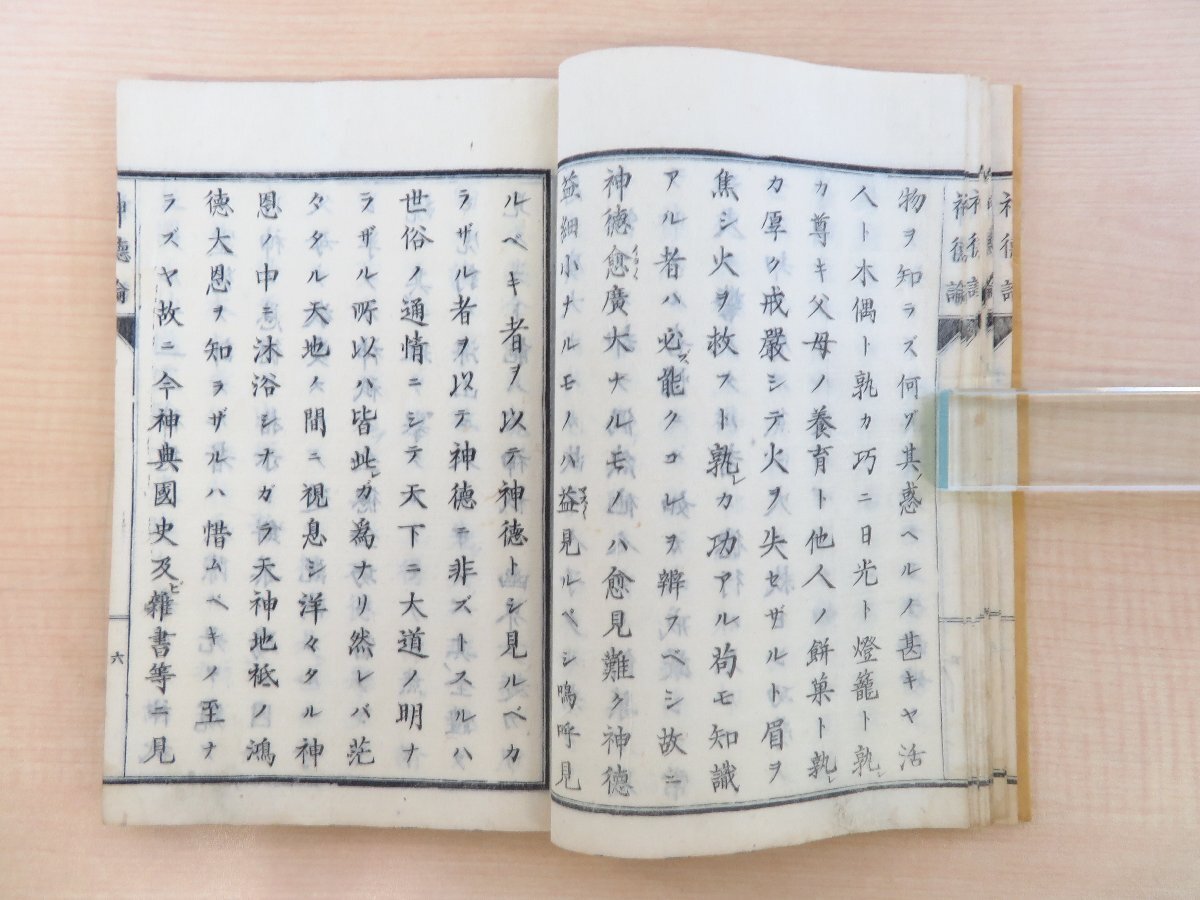 物ヲ知ラズ何ゾ其惑ヘルノ甚キヤ活
人ト木偶ト孰カ巧ニ日光ト燈籠ト孰レ
カ尊キ父母ノ養育ト他人ノ餅菓ト孰レ
カ厚ク戒嚴シテ火ヲ失セザルト眉ヲ
焦シ火ヲ救フト孰レカ功アル苟モ知識
アル者ハ必ズ能クコレヲ辨フベシ故ニ
神德愈廣大ナルモノハ愈見難ク神德
益細小ナルモノハ益見ルベシ嗚呼見
ルベキ者ヲ以テ神德トシ見ルベカ
ラザル者ヲ以テ神德ニ非ズトスルハ
世俗ノ通情ニシテ天下ニ大道ノ明ナ
ラザル所以ハ皆此レガ為ナリ然レバ茫
々タル天地ノ間ニ視息シ洋々タル神
恩ノ中ニ沐浴シナガラ天神地祇ノ鴻
德大恩ヲ知ラザルハ惜ムベキノ至ナ
ラズヤ故ニ今神典國史及ビ雜書等ニ見
神德論
六